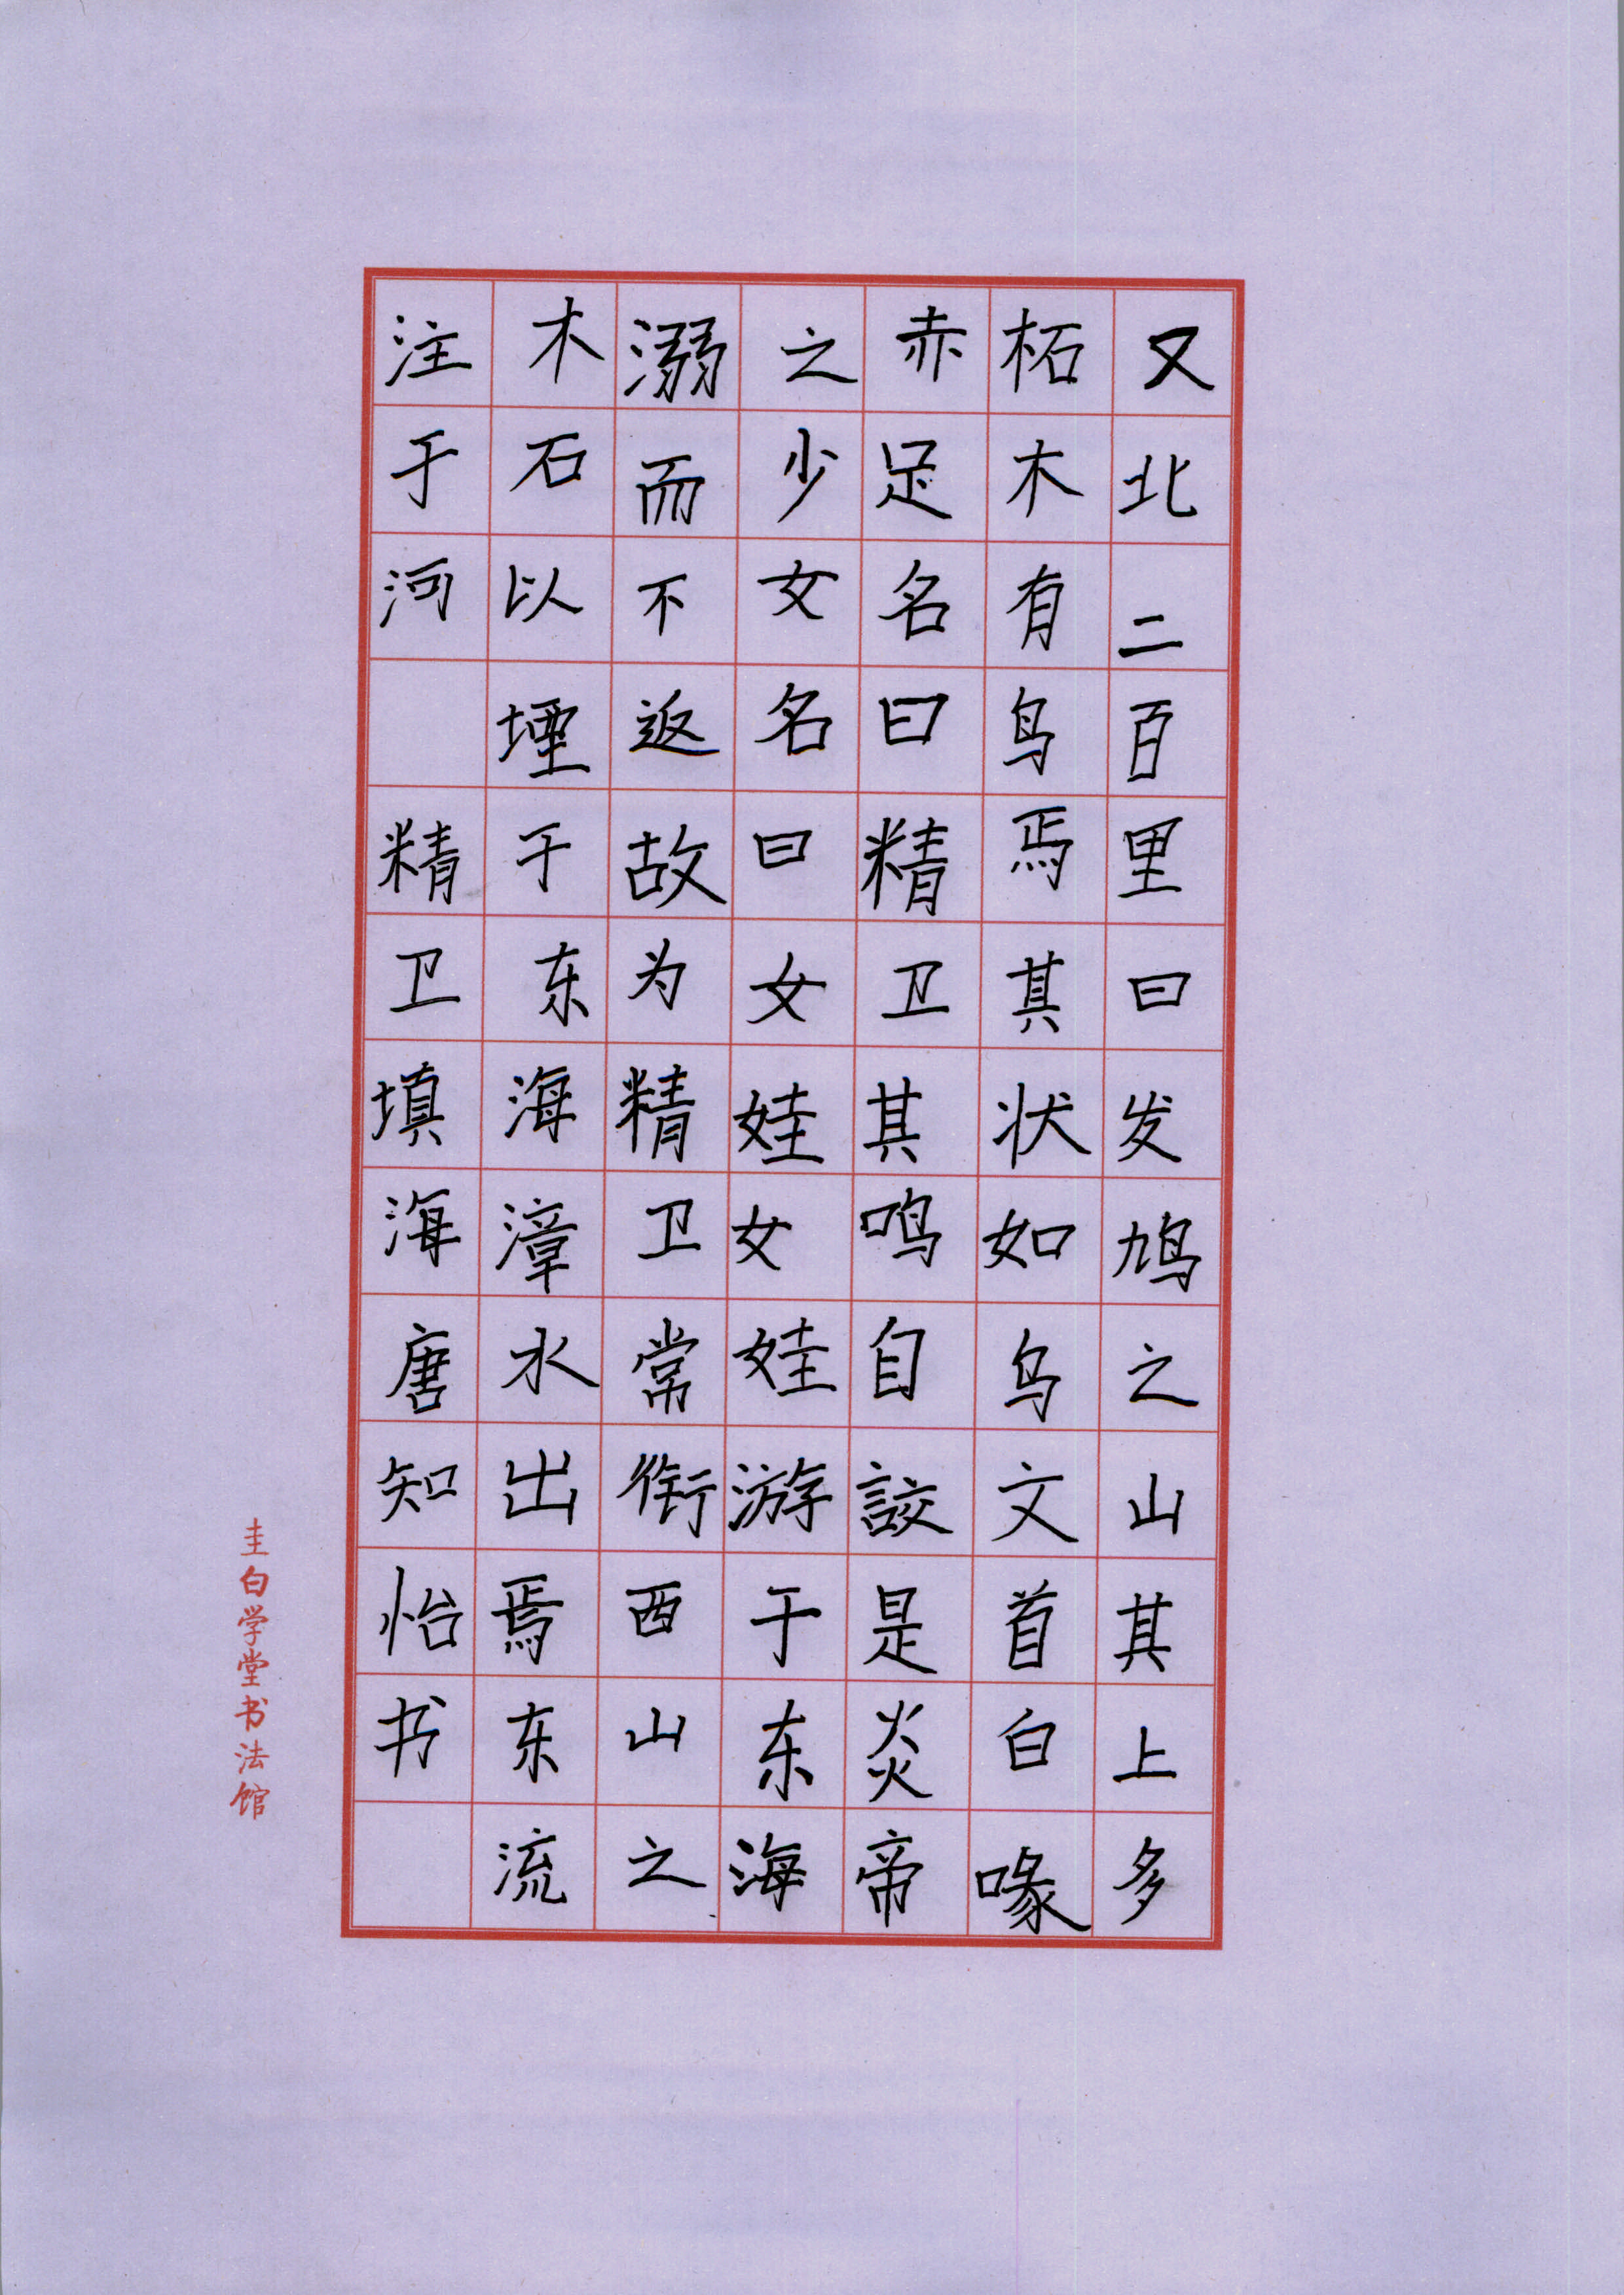 又北二百里曰发鸠之山其上多
柘木有鸟焉其状如乌文首白喙
赤足名曰精卫其鸣自詨是炎帝
之少女名曰女娃女娃游于东海
溺而不返故为精卫常衔西山之
木石以堙于东海漳水出焉东流
注于河 精卫填海唐知怡书
圭白学堂书法馆